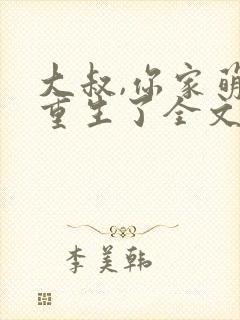 大叔,你家萌
重生了全文
李美韩